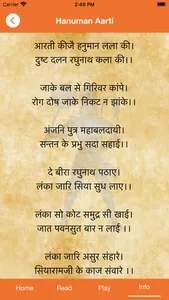 Carrier
2:49 PM
Hanuman Aarti
आरती कीजै हनुमान लला की।
दुष्ट दलन रघुनाथ कला की।।
जाके बल से गिरिवर कांपे।
रोग दोष जाके निकट न झांके।।
अंजनि पुत्र महाबलदायी।
सन्तन के प्रभु सदा सहाई।।
दे बीरा रघुनाथ पठाए।
लंका जारि सिया सुध लाए।।
लंका सो कोट समुद्र सी खाई।
जात पवनसुत बार न लाई ।।
लंका जारि असुर संहारे।
सियारामजी के काज संवारे ।।
Home Read Play Info